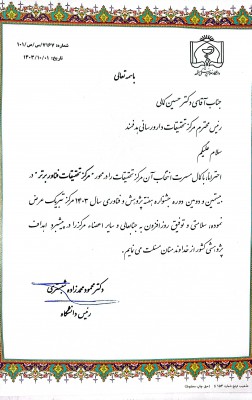 شماره: ۱۰۱/ص/س/۷۱۶۷
تاریخ: ۱۴۰۳/۱۰/۰۱
باسمه تعالی
جناب آقای دکتر حسین کمالی
رئیس محترم مرکز تحقیقات دارورسانی هدفمند
سلام علیکم
احتراماً، با کمال مسرت انتخاب آن مرکز تحقیقات را در محور "مرکز تحقیقات فناور برتر" در
بیستمین و دومین دوره جشنواره هفته پژوهش و فناوری سال ۱۴۰۳ مرکز تبریک عرض
نموده، سلامتی و توفیق روزافزون به جنابعالی و سایر اعضاء مرکز را در پیشبرد اهداف
پژوهشی کشور از خداوند منان مسئلت می نمایم.
دکتر محمود محمدزاده شبستری
رئیس دانشگاه